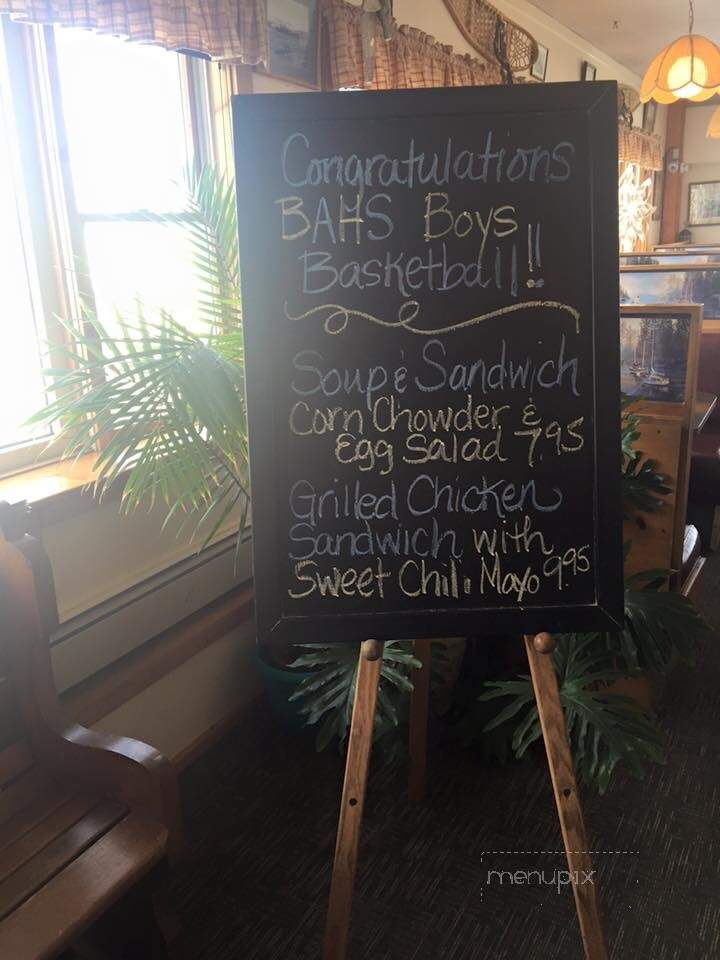 Congratulations
BAHS Boys
Basketball!!
Soup & Sandwich
Corn Chowder &
Egg Salad 7.95
Grilled Chicken
Sandwich with
Sweet Chili Mayo 9.95
menupix